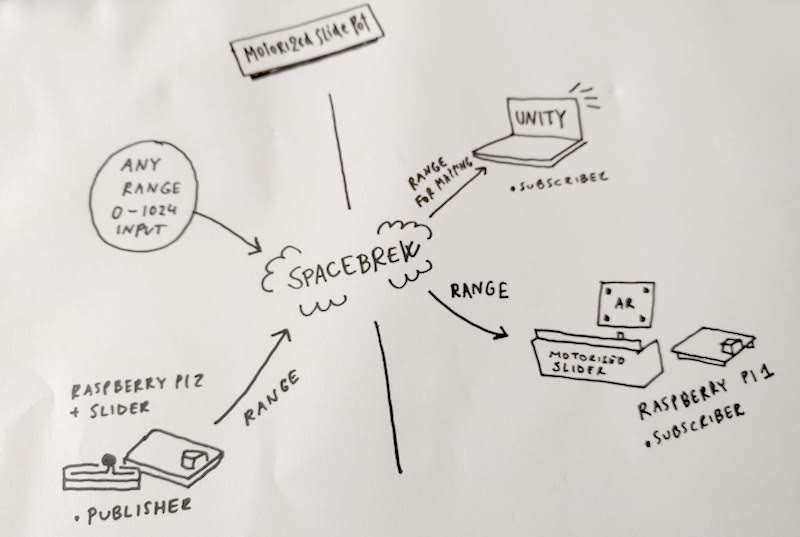 Motorized Slide Pot
ANY
RANGE
0-1024
INPUT
UNITY
RANGE
FOR MAPING
.SUBSCRIBER
SPACEBREW
RANGE
AR
MOTORIZED
SLIDER
RASPBERRY PI 1
.SUBSCRIBER
RASPBERRY PI 2
+ SLIDER
RANGE
.PUBLISHER